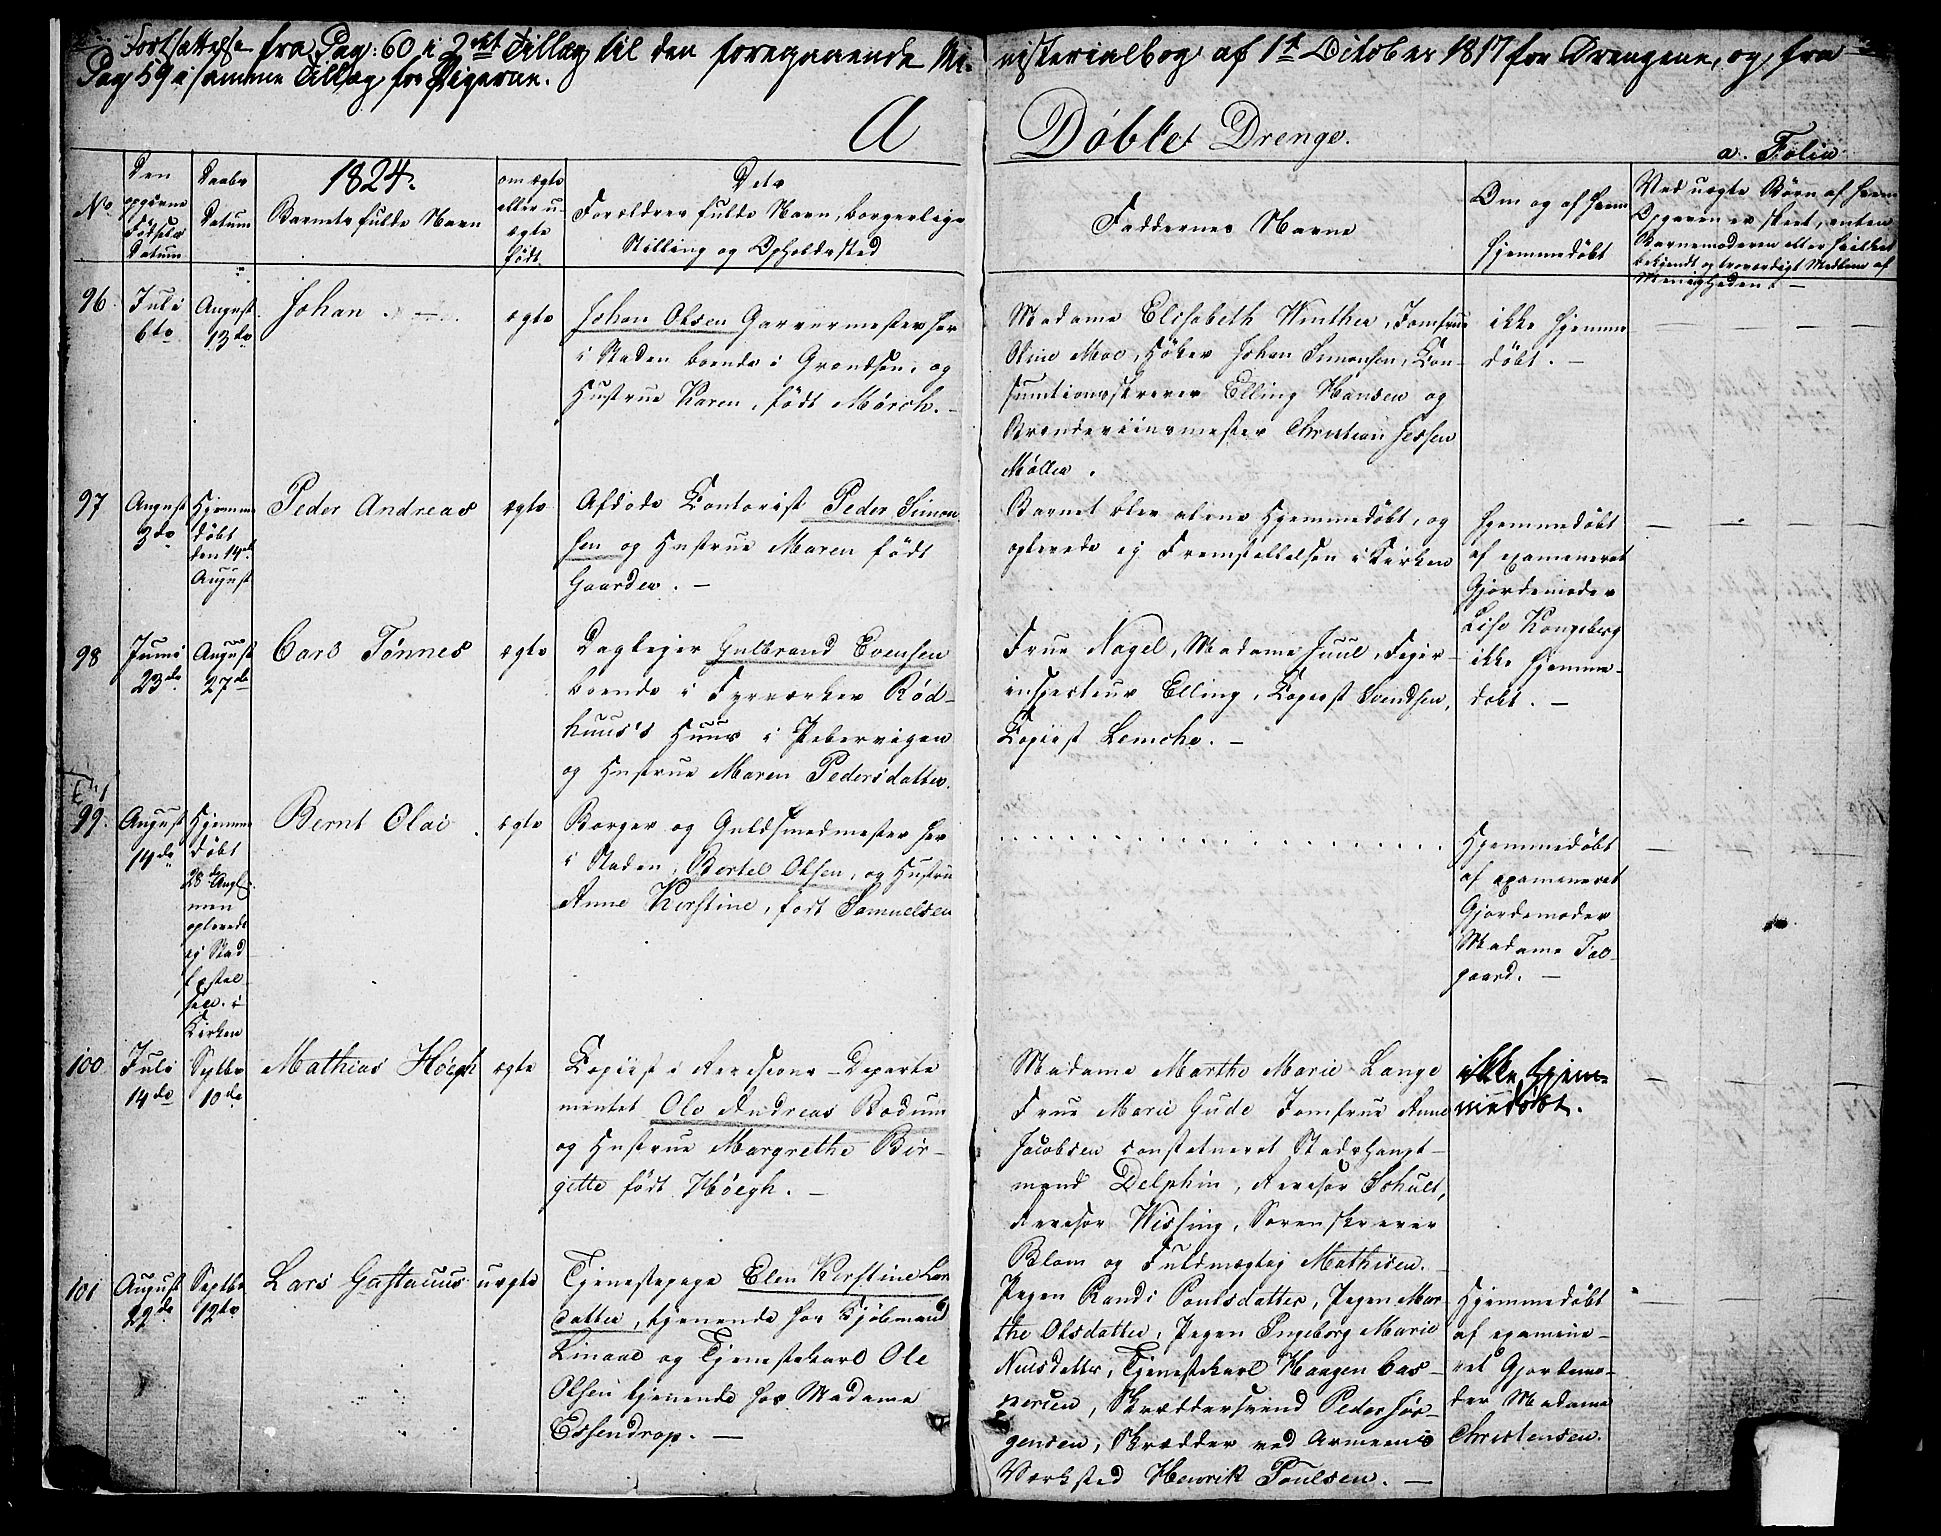 Fortsættelse fra Pag: 60 i 2det Tillæg til den foregaaende Mi-
nisterialbog af 1st October 1817 for Drengene, og fra
Pag 59 i samme Tillæg for Pigerne.
A
Døbte Drenge.
a. Folio
No
Den
opgivne
Fødsels
Datum
Daabs
Datum
1824.
Barnets fulde Navn
om ægte
eller u-
ægte
født.
Dets
Forældres fulde Navn, borgerlige
Stilling og Opholdssted
Faddernes Navne
Om og af hvem
hjemmedøbt
Ved uægte Børn af hvem
Opgaven er skeet, enten
Barnemoderen eller hvilket
bekjendt og troværdigt Medlem af
Menigheden.
96.
Juli
6te
August
13de
Johan. —
ægte
Johan Olsen Garvermester her
i Staden boende i Grændsen, og
Hustrue Karen, født Mørch. —
Madame Elisabeth Winther, Jomfrue
Oline Moe, Høker Johan Simensen, Con-
sumtionsskriver Elling Hansen og
Brænderiinsmester Christian Jessen
Møller.
ikke hjemme
døbt. —
97
August
3de
Hjemme
døbt
den 14de
August
Peder Andreas
ægte
Afdøde Contorist Peder Simon
sen og Hustrue Maren født
Gaarder. —
Barnet blev alene hjemmedøbt, og
oplevede ej Fremstillelsen i Kirken
hjemmedøbt
af examineret
Gjordemoder
Lise Kongsberg
98
Juni
23de
August
27de
Carl Tønnes
ægte
Dagleier Gulbrand Evensen
boende i Fyrværker Rød-
huus's Huus i Pebervigen
og Hustrue Maren Pedersdatter.
Frue Nagel, Madame Juul, Fyer-
inspecteur Elling, Copiist Svendsen,
Copiist Lemche. —
ikke hjemme-
døbt. —
99.
August
14de
Hjemme
døbt
28de Augst
men
oplevede
ej Stad
fæstel-
sen i
Kirken
Bernt Olai.
ægte
Borger og Guldsmedmester her
i Staden, Bertel Olsen, og Hustru
Anne Kirstine, født Samuelsen
Hjemmedøbt
af examineret
Gjordemoder
Madame Fal-
gaard. —
100
Juli
14de
Septbr
10de
Mathias Høegh
ægte
Copiist i Revisions-Departe
mentet Ole Andreas Bodum
og Hustrue Margrethe Bir-
gitte født Høegh. —
Madame Marthe Marie Lange
Frue Marie Gude Jomfrue Anne
Jacobsen constitueret Stadshaupt-
mand Delphin, Revisor Schult,
Revisor Wissing, Sorenskriver
Blom og Fuldmægtig Mathisen. —
ikke hjem-
medøbt.
101
August
22de
Septbr
12te
Lars Gustavus
uægte
Tjenestepige Elen Kirstine Lars
datter, tjenende hos Kjøbmand
Linaae og Tjenestekarl Ole
Olsen tjenende hos Madame
Essendrop. —
Pigen Randi Poulsdatter, Pigen Mar-
the Olsdatter, Pigen Ingeborg Marie
Nielsdatter, Tjenestekarl Haagen Cas-
persen, Skræddersvend Peder Jør-
gensen, Skrædder ved Armeens
Værksted Henrik Poulsen. —
Hjemmedøbt
af examine-
ret Gjordemo-
der Madame
Christensen.